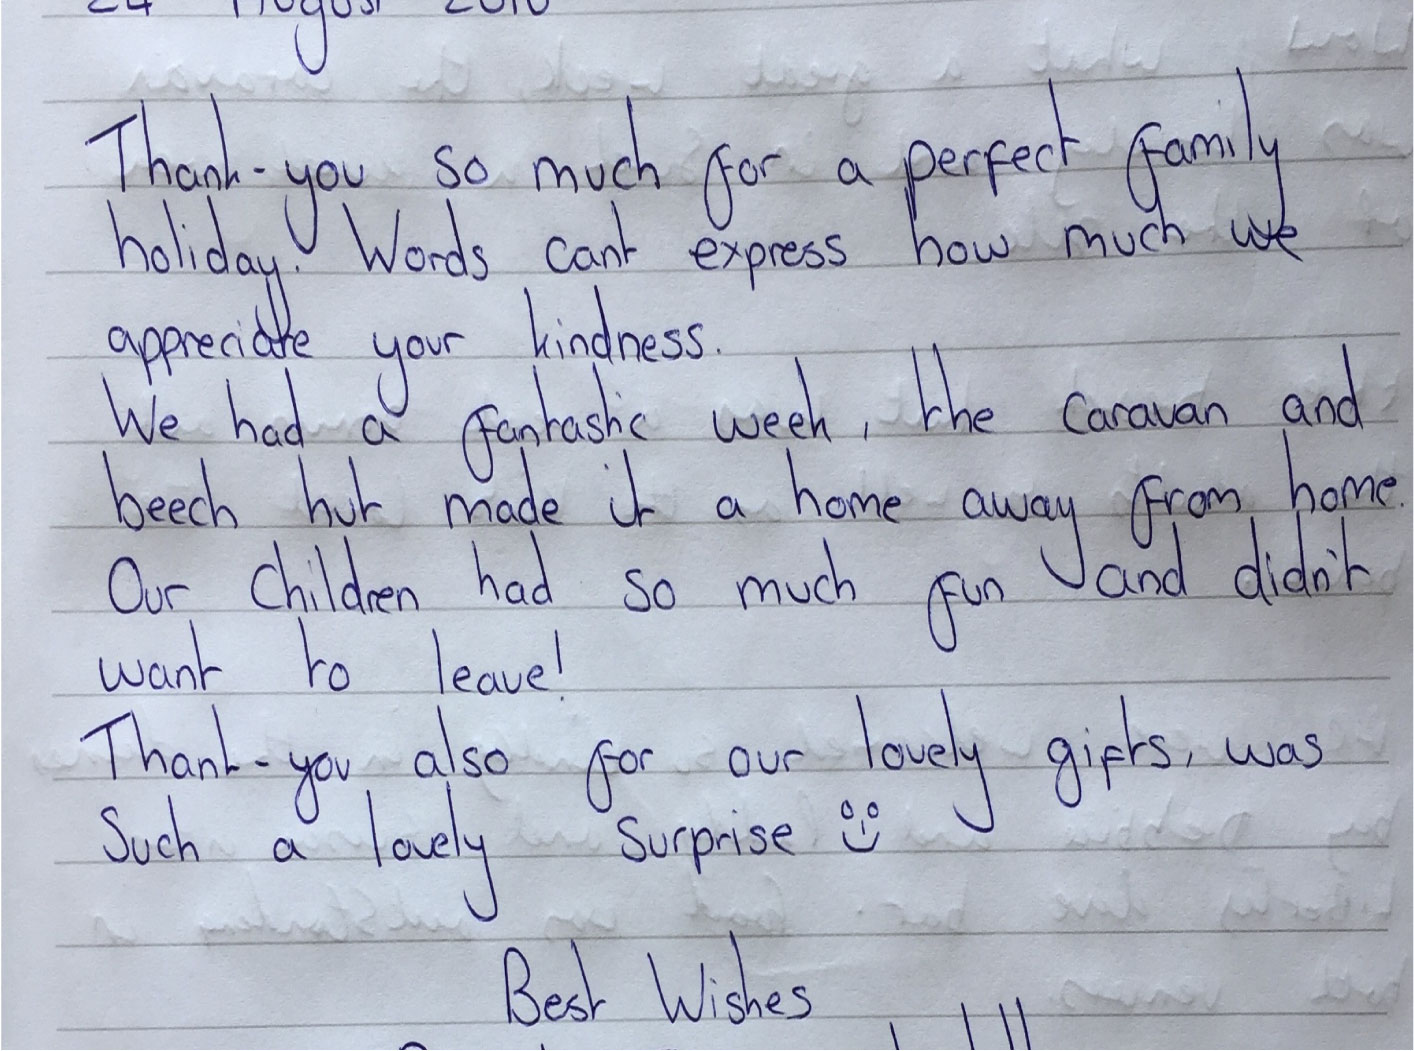 24 August
Thank-you so much for a perfect family
holiday. Words cant express how much we
appreciate your kindness.
We had a fantastic week, the caravan and
beech hut made it a home away from home.
Our Children had so much fun and didn't
want to leave!
Thank-you also for our lovely gifts, was
Such a lovely Surprise
Best Wishes